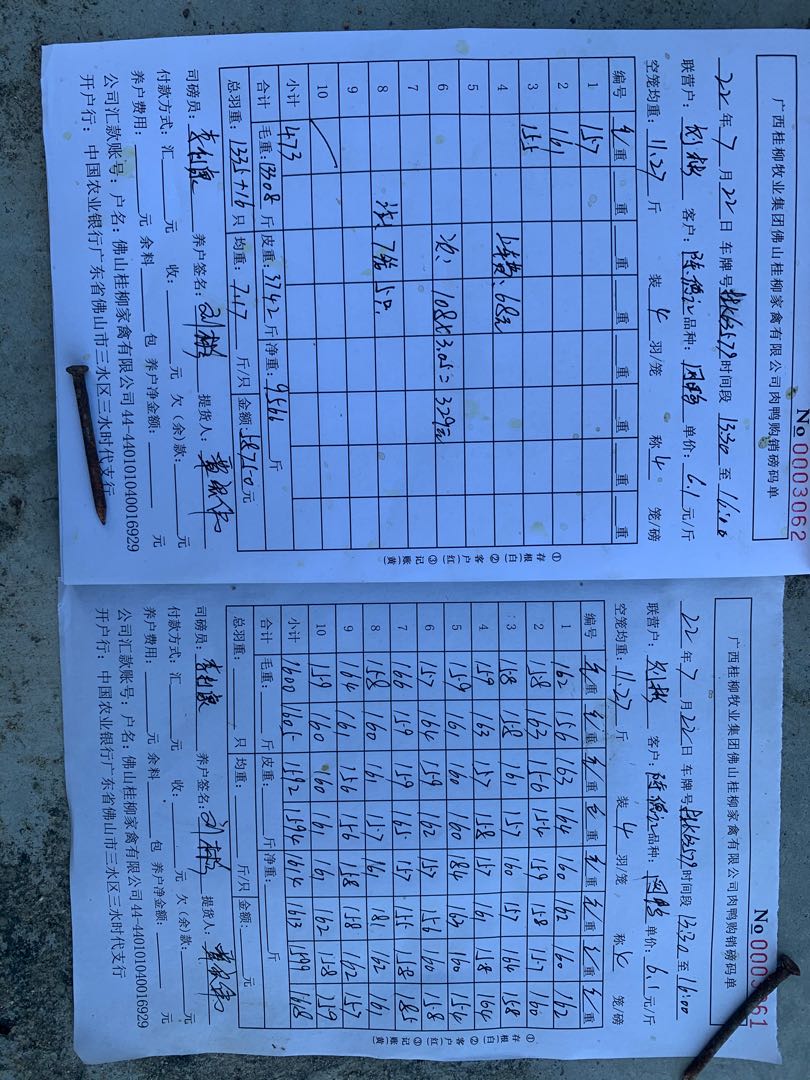 № 00003062
广西桂柳牧业集团佛山桂柳家禽有限公司肉鸭购销磅码单
22年7月22日 车牌号 时间段 13:30 至 16:00
联营户: 客户: 品种: 单价: 6.1 元/斤
空笼均重: 11.27 斤 装 4 羽/笼 称 4 笼/磅
编号 毛重 重 重 重 重 重 重 重
1 157
2 161
3 155
4 上车费:68元
5
6 次: 108×3.05=329元
7
8
9
10
小计 473
合计 毛重: 13308 斤 皮重: 3742 斤 净重: 9566 斤
总羽重: 1335+16 只 均重: 7.17 斤/只 金额: 58710 元
司磅员: 养户签名: 提货人:
付款方式: 汇 元 收: 元 欠(余)款: 元
养户费用: 元 余料 包 养户净金额: 元
公司汇款账号: 户名: 佛山桂柳家禽有限公司 44-440101040016929
开户行: 中国农业银行广东省佛山市三水区三水时代支行
①存根(白) ②客户(红) ③记账(黄)
№ 000 61
广西桂柳牧业集团佛山桂柳家禽有限公司肉鸭购销磅码单
22年7月22日 车牌号 时间段 13:30 至 16:00
联营户: 客户: 品种: 单价: 6.1 元/斤
空笼均重: 11.27 斤 装 4 羽/笼 称 4 笼/磅
编号 毛重 毛重 毛重 毛重 毛重 毛重 毛重 毛重
1 162 156 163 164 160 162 160 162
2 158 163 156 154 159 158 157 160
3 158 158 161 157 160 157 164 158
4 159 163 157 158 157 161 158 164
5 159 161 160 160 184 163 160 154
6 157 164 159 162 157 156 160 158
7 166 159 159 165 157 155 158 185
8 158 160 161 157 161 181 162 161
9 164 161 156 156 158 158 162 157
10 159 160 160 161 161 162 158 159
小计 1600 1605 1592 1594 1614 1613 1599 1618
合计 毛重: 斤 皮重: 斤 净重: 斤
总羽重: 只 均重: 斤/只 金额: 元
司磅员: 养户签名: 提货人:
付款方式: 汇 元 收: 元 欠(余)款: 元
养户费用: 元 余料 包 养户净金额: 元
公司汇款账号: 户名: 佛山桂柳家禽有限公司 44-440101040016929
开户行: 中国农业银行广东省佛山市三水区三水时代支行
①存根(白) ②客户(红) ③记账(黄)